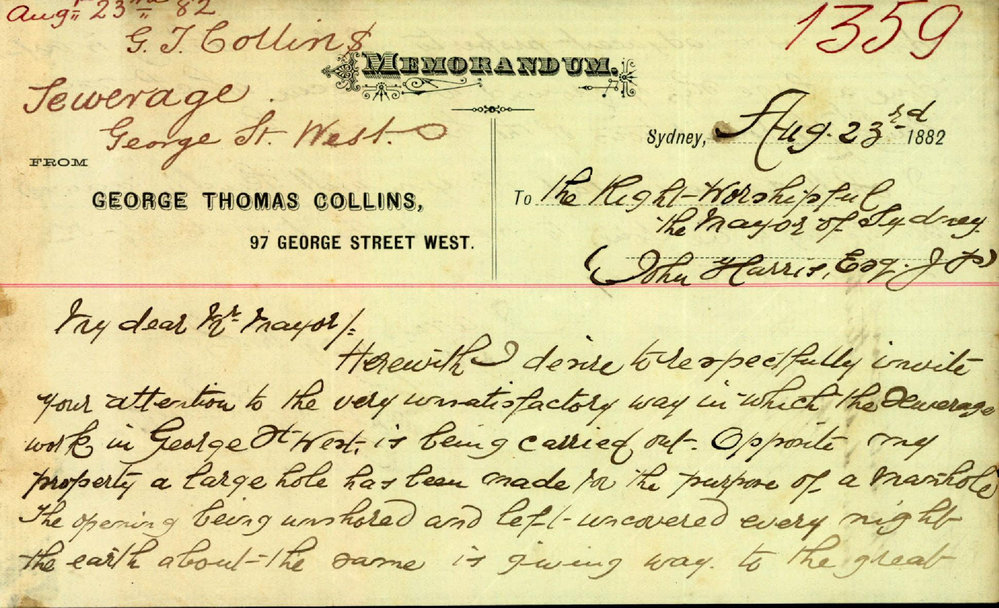 Augst 23rd 82
1359
G. T. Collins
MEMORANDUM.
Sewerage.
George St. West.
Sydney, Aug. 23rd 1882
FROM
GEORGE THOMAS COLLINS,
97 GEORGE STREET WEST.
To the Right Worshipful
the Mayor of Sydney.
(John Harris, Esq. J P)
My dear Mr. Mayor/:
Herewith I desire to respectfully invite
your attention to the very unsatisfactory way in which the Sewerage
work in George St West. is being carried out. Opposite my
property a large hole has been made for the purpose of a manhole
The opening being unshored and left uncovered every night
the earth about the same is giving way to the great